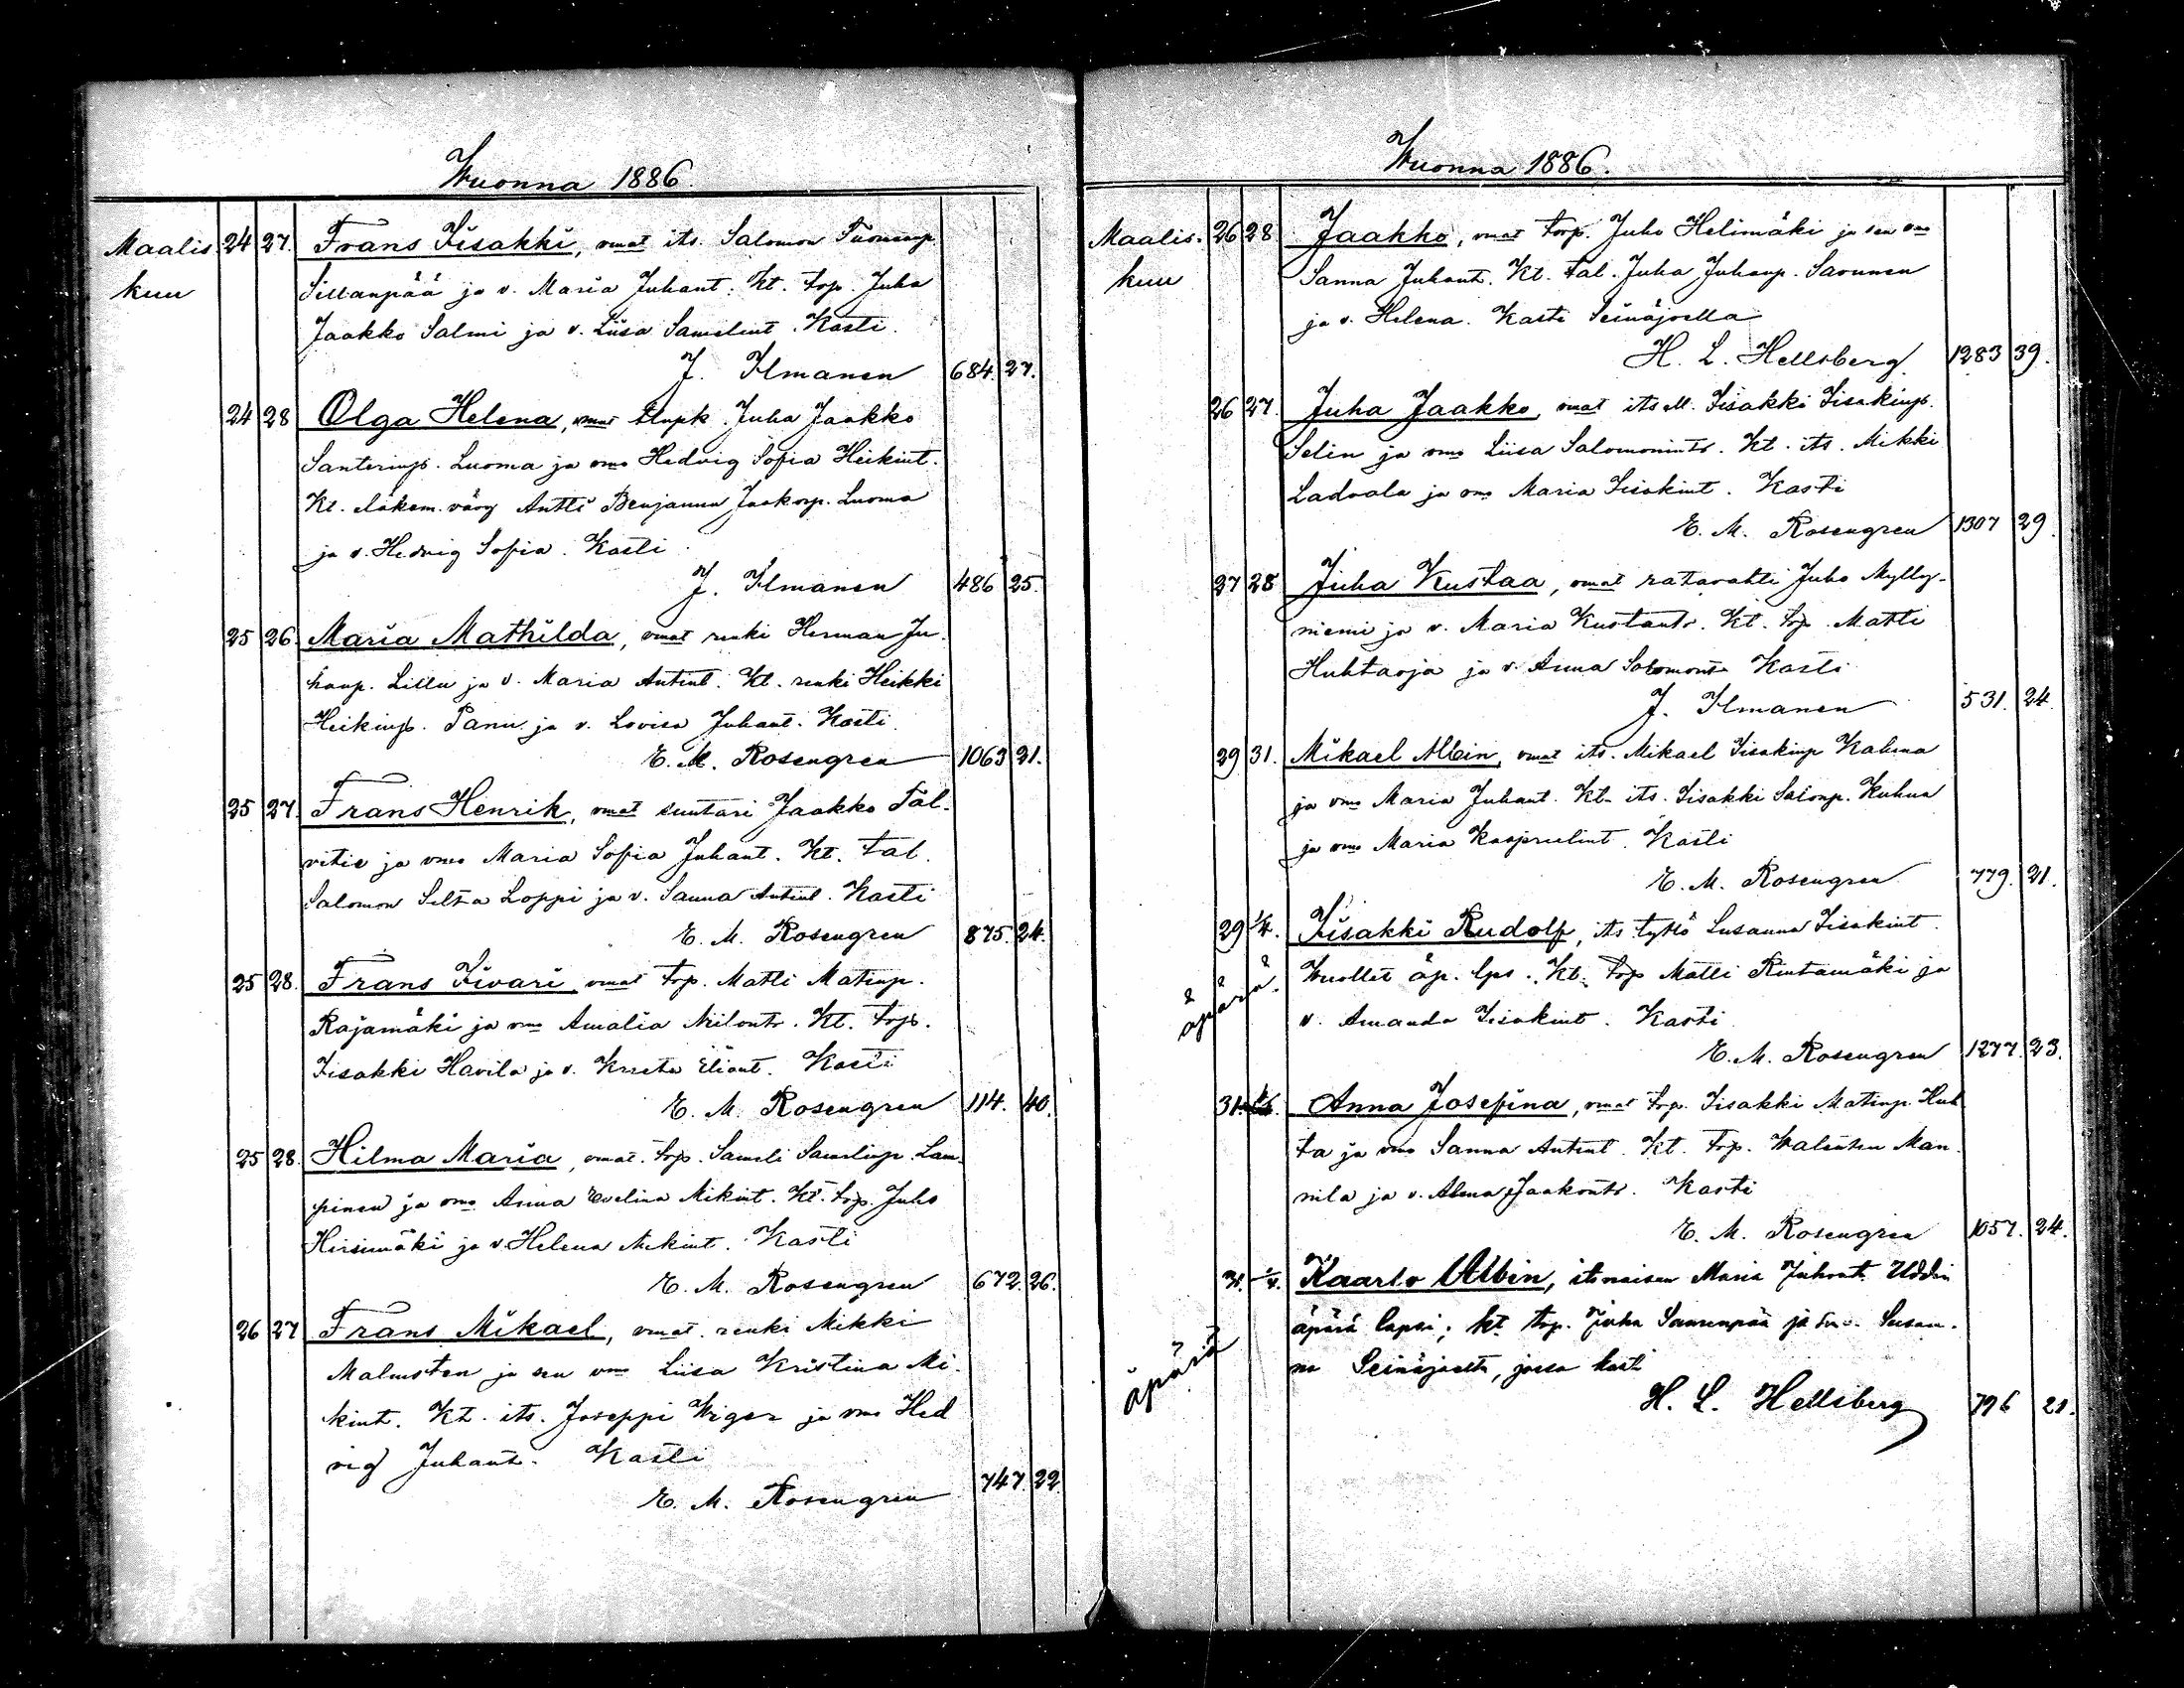 Wuonna 1886.
Maalis 24 27. Frans Iisakki, vmat its. Salomon Tuomaanp.
kuu Sillanpää ja v. Maria Juhant. Kt. trp. Juha
Jaakko Salmi ja v. Liisa Samelint. Kasti.
J. Ilmanen 684. 27.
24 28 Olga Helena, vmat Juha Jaakko
Santerinp. Luoma ja vmo Hedvig Sofia Heikint.
Kt. eläkem. värg Antti Benjamin Jaakonp. Luoma
ja v. Hedvig Sofia. Kasti
J. Ilmanen 486 25.
25 26. Maria Mathilda, vmat renki Herman Ju-
hanp. Lillu ja v. Maria Antint. Kt. renki Heikki
Heikinp. Panu ja v. Lovisa Juhant. Kasti
E. M. Rosengren 1063 21.
25 27. Frans Henrik, vmat suutari Jaakko Tal-
vitie ja vmo Maria Sofia Juhant. Kt. tal.
Salomon Selta Loppi ja v. Sanna Antint. Kasti
E. M. Rosengren 875. 24.
25 28. Frans Iivari, vmat trp. Matti Matinp.
Rajamäki ja vmo Amalia Kt. trp.
Iisakki Havila ja v. Eliant. Kasti
E. M. Rosengren 114. 40.
25 28. Hilma Maria, vmat. trp. Sameli Samelinp. Lam-
pinen ja vmo Anna Evelina Mikint. Kt. trp. Juho
Hirsimäki ja v. Helena Mikint. Kasti
E. M. Rosengren 672. 26.
26 27 Frans Mikael, vmat. renki Mikki
Malmsten ja sen vmo Liisa Kristina Mi-
kint. Kt. its. Joseppi Wiger ja vmo Hed
vig Juhant. Kasti
E. M. Rosengren 747. 22
Wuonna 1886.
Maalis. 26 28 Jaakko, vmat torp. Juho Helimäki ja sen vmo
kuu Sanna Juhant. Kt. tal. Juha Juhanp. Savunen
ja v. Helena. Kaste Seinäjoella
H. L. Hellsberg. 1283 39.
26 27. Juha Jaakko, vmat its. Iisakki Iisakinp.
Selin ja vmo Liisa Salomonintr. Kt. its. Mikki
Ladvala ja vmo Maria Iisakint. Kasti
E. M. Rosengren 1307 29.
27 28 Juha Kustaa, vmat ratavahti Juho Mylly-
niemi ja v. Maria Kustaantr. Kt. trp. Matti
Huhtaoja ja v. Anna Salomont. Kasti
J. Ilmanen 531. 24
29 31. Mikael Albin, vmat its. Mikael Iisakinp Kahma
ja vmo Maria Juhant. Kt. its. Iisakki Salonp. Kuhna
ja vmo Maria Kasti
E. M. Rosengren 779. 21.
29 1/4. Iisakki Rudolf, its. tyttö Susanna Iisakint.
äpärä. Wuollet äp. lps. Kt. trp Matti Rintamäki ja
v. Amanda Iisakint. Kasti
E. M. Rosengren 1277. 23.
31. Anna Josefina, vmat trp. Iisakki Matinp. Huh
ta ja vmo Sanna Antint. Kt. trp. Walentin Man-
nila ja v. Alma Jaakontr. Kasti
E. M. Rosengren 1057. 24.
31. 1/4. Kaarlo Albin, itsnaisen Maria Juhont. Uddin
äpärä äpärä lapsi; kt trp. Juha Saurenpää ja Susan-
na Seinäjoelta, jossa kasti
H. L. Hellsberg 796 21.